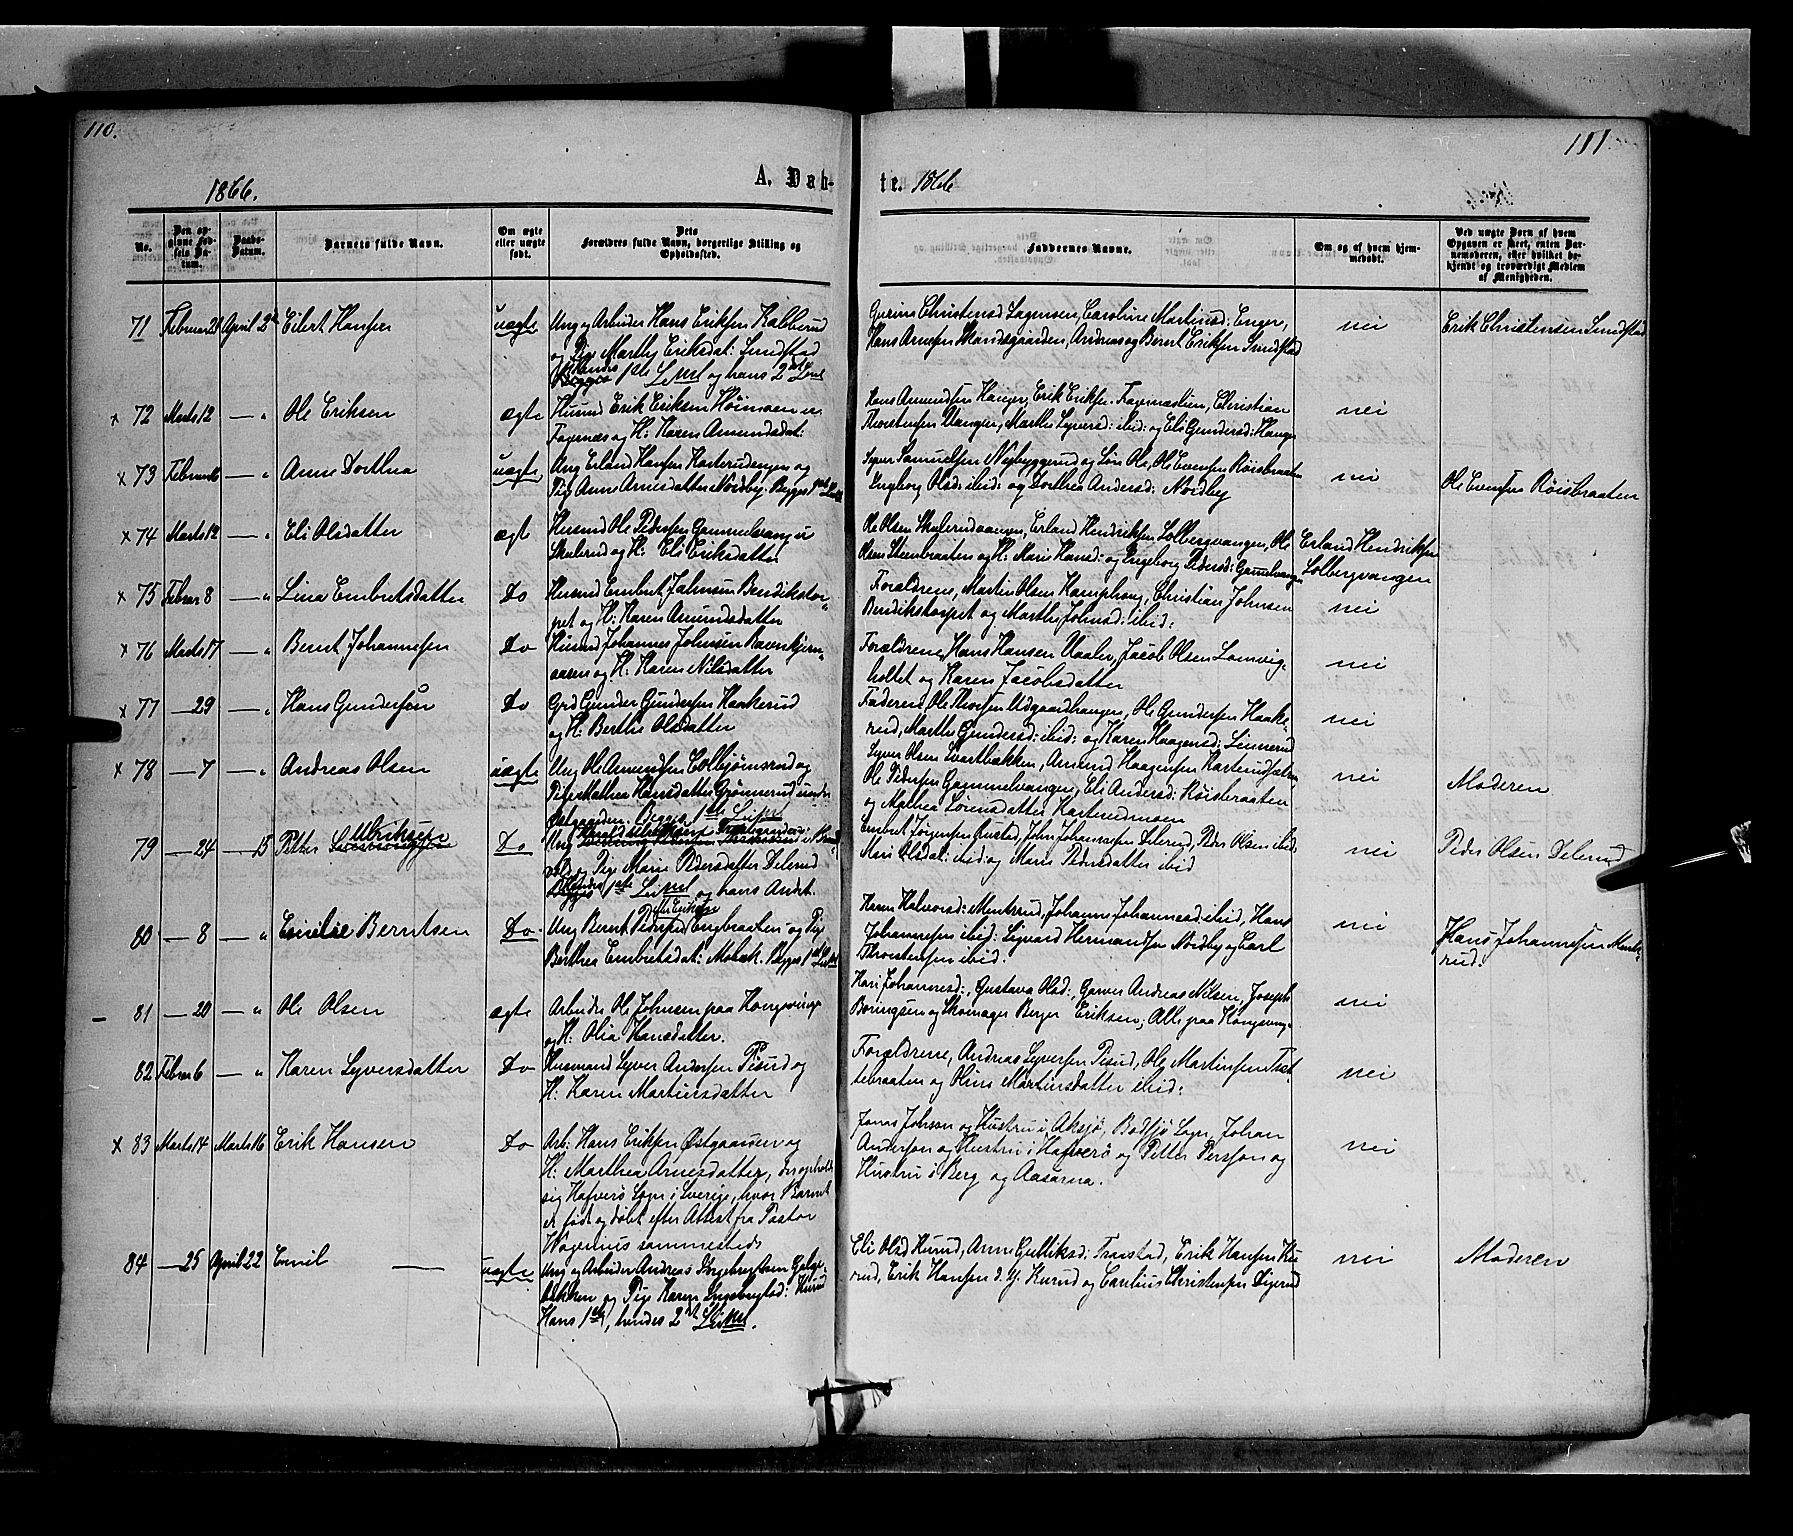 110.
111
1866.
A. Dåb-
te. 1866
No.
Den opgivne Fødsels Datum.
Daabs-Datum.
Barnets fulde Navn.
Om ægte eller uægte født.
Dets Forældres fulde Navn, borgerlige Stilling og Opholdssted.
Faddernes Navne.
Om og af hvem hjemmedøbt.
Ved uægte Børn af hvem Opgaven er skeet, enten Barnemoderen, eller hvilket bekjendt og troværdigt Medlem af Menigheden.
71 Februar 21 April 2 Eilert Hansen uægte
Ung og Arbeider Hans Eriksen Kalberud
og Pige Marthe Eriksdat: Sundstad
Hendes 1ste Leierm. og hans 2det Leierm.
Gurine Christensd Lagensen, Caroline Martinsd: Enger,
Hans Arnesen Skandsgaarden, Andreas og Bernt Eriksen Sundstad
nei
Erik Christensen Sundstad
x 72 Marts 12 — " Ole Eriksen ægte
Husmd Erik Eriksen Høimoen u.
Fagernæs og H: Karen Amundsdat:
Hans Amundsen Hanger, Erik Eriksen Fagernæseien, Christian
Thorstensen Vanger, Marthe Syvers: ibid: og Eli Gundersd: Hanger
nei
x 73 Februar 16 — " Anne Dorthea uægte
Ung Erland Hansen Kasterudengen og
Pige Anne Arnesdatter Nordby. Begges 1ste Leierm
Syver Samuelsen Nybyggerud og Søn Ole, Ole Evensen Röisbraaten
Ingeborg Olsd: ibid: og Dorthea Andersd: Nordby
nei
Ole Evensen Röisbraaten
x 74 Marts 12 — " Eli Olsdatter ægte
Husmd Ole Pedersen Gammelvang u
Skulerud og H: Eli Eriksdatter
Ole Olsen Skulerudvangen, Erland Hendriksen Solbergvangen, Ole
Olsen Steenbraaten og H: Mari Hansd: og Ingeborg Pedersd: Gammelvangen
Erland Hendriksen
Solbergvangen
x 75 Februar 8 — " Lina Embretsdatter Do
Husmd Embret Johnsen Bendikstor-
pet og H: Karen Amundsdatter
Forældrene, Martin Olsen Kamphoug, Christian Johnsen
Bendikstorpet og Marthe Johnsd: ibid:
nei
x 76 Marts 17 — " Bernt Johannesen Do
Husmd Johannes Johnsen Ravnkjern-
aasen og H: Karen Nilsdatter
Forældrene, Hans Hansen Vaaler, Jacob Olsen Lomvig-
holtet og Karen Jacobsdatter
nei
x 77 — 29 — " Hans Gundersen Do
Grd Gunder Gundersen Haakerud
og H: Berthe Olsdatter
Faderen, Ole Thoresen Udgaardhangen, Ole Gundersen Haake-
rud, Marthe Gundersd: ibid: og Karen Haagensd: Linnerud
nei
x 78 — 7 — " Andreas Olsen uægte
Ung Ole Amundsen Colbjørnsrud og
Pige Mathea Hansdatter Grønnerud under
Østgaarden. Begges 1ste Leierm
Syver Olsen Svartbækken, Amund Haagensen Kasterudsætren,
Ole Pedersen Gammelvangen, Eli Andersd: Røisbraaten
og Mathea Sørensdatter Kasterudmoen
nei
Moderen
79 — 24 — 15 Petter Ulriksen Do
og Pige Marie Pedersdatter Delerud
Hendes 1ste Leierm og hans Andet.
Embret Jørgensen Austad, John Johannesen Delerud, Peder Olsen ibid:
Mari Olsdat: ibid: og Marie Pedersdatter ibid
nei
Peder Olsen Delerud
80 — 8 — " Emilie Berntsen Do
Ung Bernt Pedersen Engbraaten og Pige
Berthea Embretsdat: Mobæk. Begges 1ste Leierm
Karen Halvorsd: Mentrud, Johanne Johannesd: ibid, Hans
Johannesen ibid: Sigvard Hermandsen Nordby og Carl
Thorstensen ibid:
nei
Hans Johannesen Ment-
rud.
81 — 20 — " Ole Olsen ægte
Arbeider Ole Johnsen paa Kongsvinger
og H: Olia Hansdatter.
Kari Johannesd:, Gustava Olsd:, Garver Andreas Nilsen, Joseph
Boringsen og Skomager Berger Eriksen, Alle paa Kongsving-
nei
82 Februar 6 — " Karen Syversdatter Do
Husmand Syver Andersen Pisrud og
H: Karen Martinsdatter
Forældrene, Andreas Syversen Pisrud, Ole Martinsen Tvet-
tebraaten og Oline Martinsdatter ibid:
nei
x 83 Marts 14 Marts 16 Erik Hansen Do
Arb: Hans Eriksen Østgaarden og
H: Marthea Arnesdatter, der opholde
sig Hafverö Sogn i Sverige, hvor Barnet
er født og døbt efter Attest fra Pastor
Wagenius sammesteds
Jonas Johnson og Hustru i Aksjø, Bodsjö Sogn, Johan
Anderson og Hustru i Hafverö og Petter Persson og
Hustru i Berg og Aasarna.
nei
84 — 25 April 22 Emil — uægte
Ung og Arbeider Andreas Ingebregtsen Galge-
bakken og Pige Karen Ingebregtsd: Kurud
Hans 1ste, hendes 2det Leierm.
Eli Olsd Kurud, Anne Gulliksd: Traastad, Erik Hansen Ku-
rud, Erik Hansen d. y. Kurud og Carelius Christensen Digerud
nei
Moderen